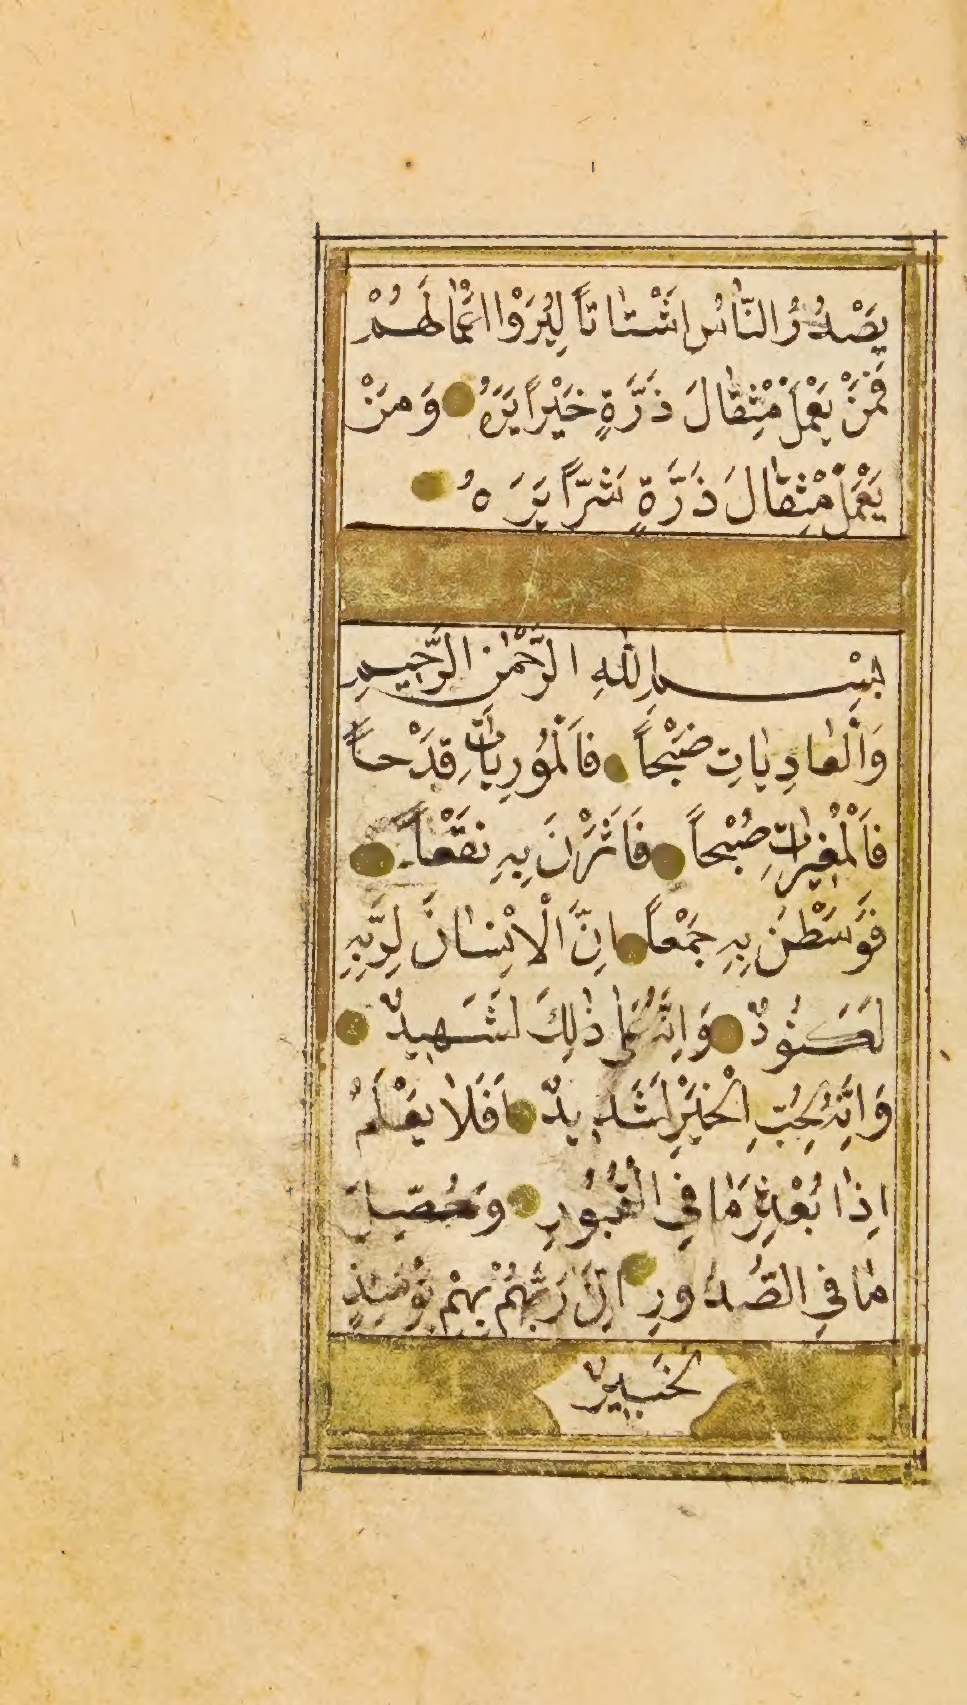 يَصْدُرُ النَّاسُ اَشْتَاتاً لِيُرَوْا اَعْمَالَهُمْ
فَمَنْ يَعْمَلْ مِثْقَالَ ذَرَّةٍ خَيْراً يَرَهُ وَمَنْ
يَعْمَلْ مِثْقَالَ ذَرَّةٍ شَرّاً يَرَهُ
بِسْمِ اللّٰهِ الرَّحْمٰنِ الرَّحِيمِ
وَالْعَادِيَاتِ ضَبْحاً فَالْمُورِيَاتِ قَدْحاً
فَالْمُغِيرَاتِ صُبْحاً فَاَثَرْنَ بِهِ نَقْعاً
فَوَسَطْنَ بِهِ جَمْعاً اِنَّ الْاِنْسَانَ لِرَبِّهِ
لَكَنُودٌ وَاِنَّهُ عَلٰى ذٰلِكَ لَشَهِيدٌ
وَاِنَّهُ لِحُبِّ الْخَيْرِ لَشَدِيدٌ اَفَلَا يَعْلَمُ
اِذَا بُعْثِرَ مَا فِي الْقُبُورِ وَحُصِّلَ
مَا فِي الصُّدُورِ اِنَّ رَبَّهُمْ بِهِمْ يَوْمَئِذٍ
لَخَبِيرٌ